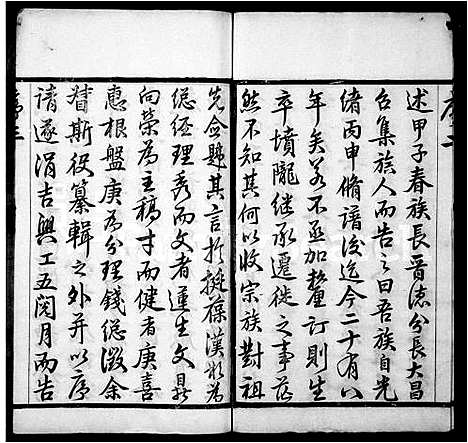 序二
述甲子春族長晋德分長大昌
召集族人而告之曰吾族自光
緒丙申脩譜後迄今二十有八
年矣若不亟加釐訂則生
卒墳隴繼承遷徙之事茫
然不知其何以收宗族對祖
先僉韙其言於擬葆漢水為
總經理秀而文者蓮生文昇
向榮為主稿才而健者庚喜
惠根盤庚為分理錢總徵余
督斯役纂輯之外并以序
請遂涓吉興工五閱月而告
序三